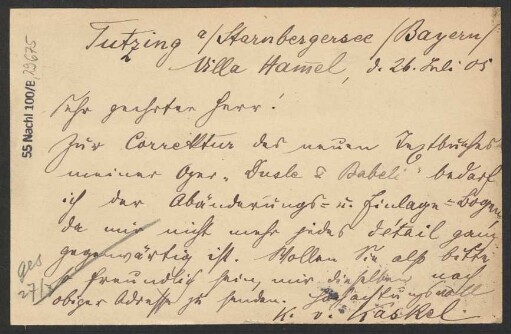 Tutzing a/Starnbergersee /Bayern/
Villa Hamel, d. 26. Juli 05
55 Nachl 100/B, 29675
Sehr geehrter Herr!
Zur Correktur des neuen Textbuches
meiner Oper „Dusle & Babeli" bedarf
ich der Abänderungs= u. Einlage=Bogen,
da mir nicht mehr jedes détail ganz
gegenwärtig ist. Wollen Sie also bitte
so freundlich sein, mir dieselben nach
obiger Adresse zu senden. Hochachtungsvoll
K. v. Kaskel.
ges
27/7